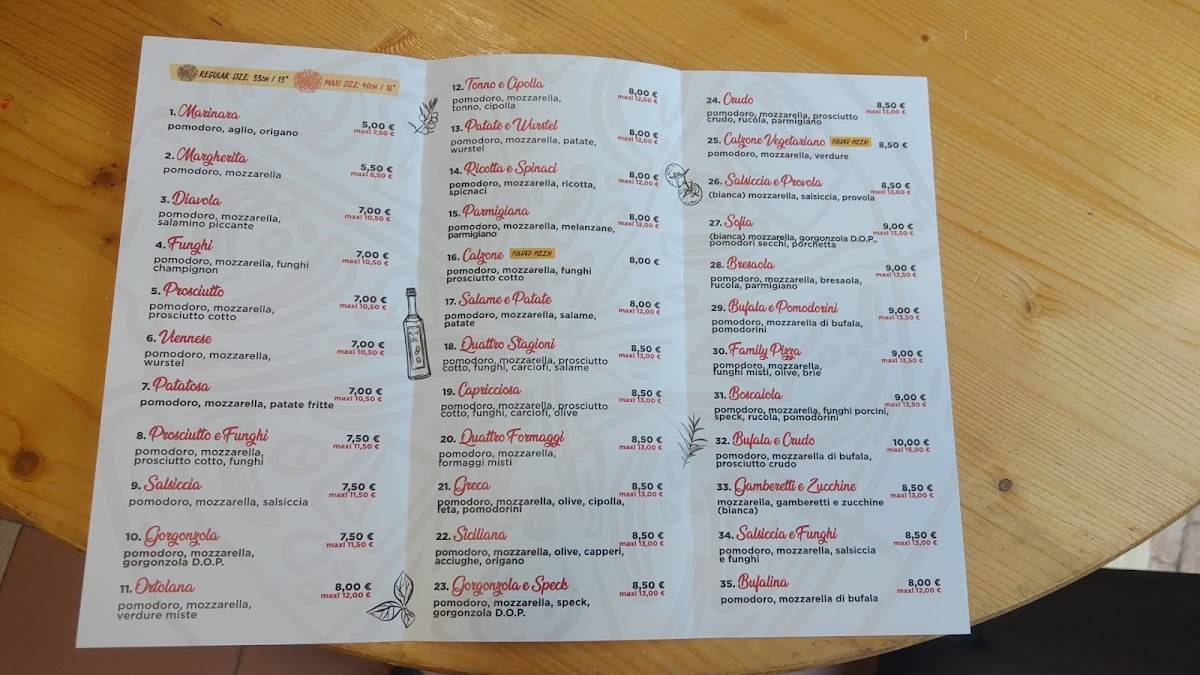 REGULAR SIZE: 33cm / 13"
MAXI SIZE: 40cm / 16"
1. Marinara 5,00 €
pomodoro, aglio, origano maxi 7,50 €
2. Margherita 5,50 €
pomodoro, mozzarella maxi 8,50 €
3. Diavola 7,00 €
pomodoro, mozzarella, maxi 10,50 €
salamino piccante
4. Funghi 7,00 €
pomodoro, mozzarella, funghi maxi 10,50 €
champignon
5. Prosciutto 7,00 €
pomodoro, mozzarella, maxi 10,50 €
prosciutto cotto
6. Viennese 7,00 €
pomodoro, mozzarella, maxi 10,50 €
wurstel
7. Patatosa 7,00 €
pomodoro, mozzarella, patate fritte maxi 10,50 €
8. Prosciutto e Funghi 7,50 €
pomodoro, mozzarella, maxi 11,50 €
prosciutto cotto, funghi
9. Salsiccia 7,50 €
pomodoro, mozzarella, salsiccia maxi 11,50 €
10. Gorgonzola 7,50 €
pomodoro, mozzarella, maxi 11,50 €
gorgonzola D.O.P.
11. Ortolana 8,00 €
pomodoro, mozzarella, maxi 12,00 €
verdure miste
12. Tonno e Cipolla 8,00 €
pomodoro, mozzarella, maxi 12,00 €
tonno, cipolla
13. Patate e Wurstel 8,00 €
pomodoro, mozzarella, patate, maxi 12,00 €
wurstel
14. Ricotta e Spinaci 8,00 €
pomodoro, mozzarella, ricotta, maxi 12,00 €
spicnaci
15. Parmigiana 8,00 €
pomodoro, mozzarella, melanzane, maxi 12,00 €
parmigiano
16. Calzone FOLDED PIZZA! 8,00 €
pomodoro, mozzarella, funghi
prosciutto cotto
17. Salame e Patate 8,00 €
pomodoro, mozzarella, salame, maxi 12,00 €
patate
18. Quattro Stagioni 8,50 €
pomodoro, mozzarella, prosciutto maxi 13,00 €
cotto, funghi, carciofi, salame
19. Capricciosa 8,50 €
pomodoro, mozzarella, prosciutto maxi 13,00 €
cotto, funghi, carciofi, olive
20. Quattro Formaggi 8,50 €
pomodoro, mozzarella, maxi 13,00 €
formaggi misti
21. Greca 8,50 €
pomodoro, mozzarella, olive, cipolla, maxi 13,00 €
feta, pomodorini
22. Siciliana 8,50 €
pomodoro, mozzarella, olive, capperi, maxi 13,00 €
acciughe, origano
23. Gorgonzola e Speck 8,50 €
pomodoro, mozzarella, speck, maxi 13,00 €
gorgonzola D.O.P.
24. Crudo 8,50 €
pomodoro, mozzarella, prosciutto maxi 13,00 €
crudo, rucola, parmigiano
25. Calzone Vegetariano FOLDED PIZZA! 8,50 €
pomodoro, mozzarella, verdure
26. Salsiccia e Provola 8,50 €
(bianca) mozzarella, salsiccia, provola maxi 13,00 €
27. Sofia 9,00 €
(bianca) mozzarella, gorgonzola D.O.P., maxi 13,50 €
pomodori secchi, porchetta
28. Bresaola 9,00 €
pomodoro, mozzarella, bresaola, maxi 13,50 €
rucola, parmigiano
29. Bufala e Pomodorini 9,00 €
pomodoro, mozzarella di bufala, maxi 13,50 €
pomodorini
30. Family Pizza 9,00 €
pomodoro, mozzarella, maxi 13,50 €
funghi misti, olive, brie
31. Boscaiola 9,00 €
pomodoro, mozzarella, funghi porcini, maxi 13,50 €
speck, rucola, pomodorini
32. Bufala e Crudo 10,00 €
pomodoro, mozzarella di bufala, maxi 15,00 €
prosciutto crudo
33. Gamberetti e Zucchine 8,50 €
mozzarella, gamberetti e zucchine maxi 13,00 €
(bianca)
34. Salsiccia e Funghi 8,50 €
pomodoro, mozzarella, salsiccia maxi 13,00 €
e funghi
35. Bufalina 8,00 €
pomodoro, mozzarella di bufala maxi 12,00 €